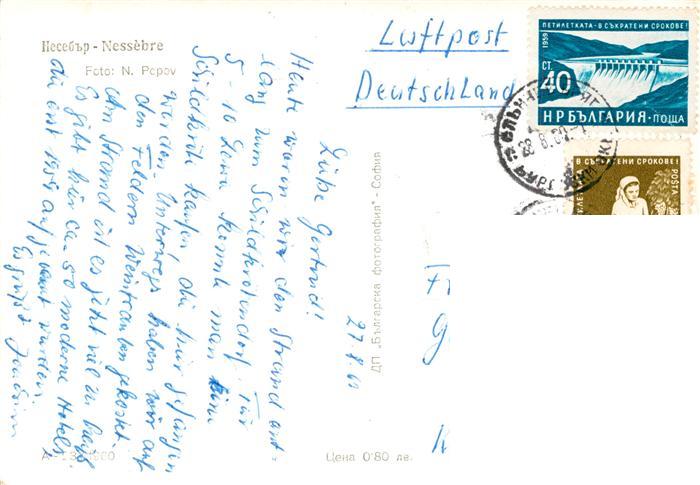 Несебър - Nessèbre
Foto: N. Popov
Luftpost
Deutschland
ПЕТИЛЕТКАТА - В СЪКРАТЕНИ СРОКОВЕ!
1959
СТ.
40
НР БЪЛГАРИЯ · ПОЩА
В СЪКРАТЕНИ СРОКОВЕ!
POSTA
28.8.60
27.8.60
Liebe Gertrud!
Heute waren wir den Strand ent-
lang zum Schildkrötendorf. Für
5 - 10 Lewa kann man eine
Schildkröte kaufen, die hier gefangen
werden. Unterwegs haben wir auf
den Feldern Weintrauben gekostet.
Am Strand ist es jetzt viel zu heiß
Es gibt hier ca. 50 moderne Hotels,
die erst 1959 aufgebaut wurden.
Es grüßt
ДП „Българска фотография" - София
А - 1960
Цена 0'80 лв.